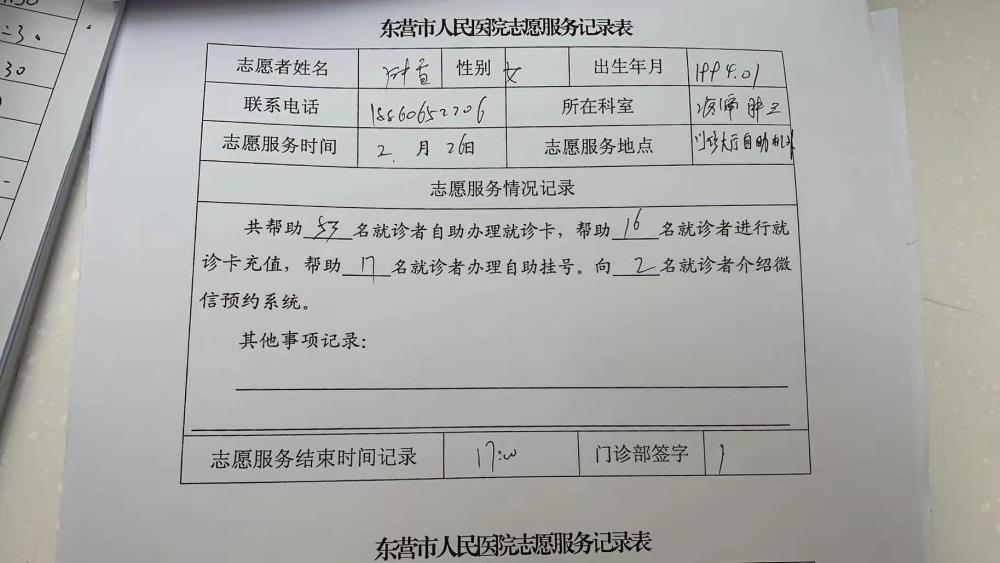 东营市人民医院志愿服务记录表
志愿者姓名 性别 女 出生年月 1994.01
联系电话 18860652206 所在科室
志愿服务时间 2.月26日 志愿服务地点 门诊大厅自助机处
志愿服务情况记录
共帮助53名就诊者自助办理就诊卡，帮助16名就诊者进行就
诊卡充值，帮助17名就诊者办理自助挂号。向2名就诊者介绍微
信预约系统。
其他事项记录：
志愿服务结束时间记录 17:00 门诊部签字
东营市人民医院志愿服务记录表